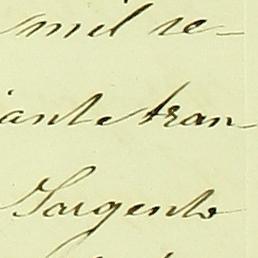 mil re-
iante tran
Sargento